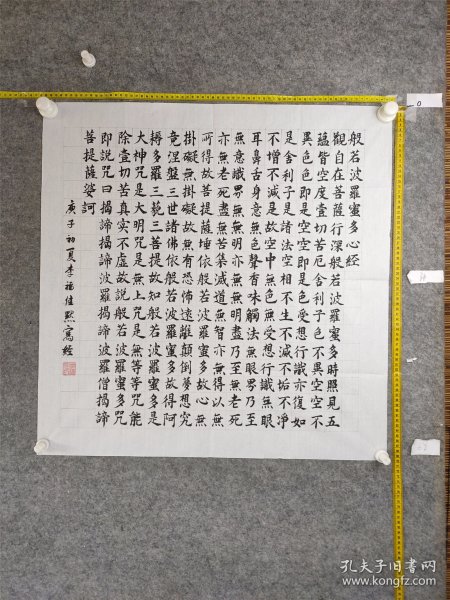 般若波羅蜜多心經
觀自在菩薩行深般若波羅蜜多時照見五
蘊皆空度壹切苦厄舍利子色不異空空不
異色色即是空空即是色受想行識亦復如
是舍利子是諸法空相不生不滅不垢不淨
不增不減是故空中無色無受想行識無眼
耳鼻舌身意無色聲香味觸法無眼界乃至
無意識界無無明亦無無明盡乃至無老死
亦無老死盡無苦集滅道無智亦無得以無
所得故菩提薩埵依般若波羅蜜多故心無
掛礙無掛礙故無有恐怖遠離顛倒夢想究
竟涅盤三世諸佛依般若波羅蜜多故得阿
耨多羅三藐三菩提故知般若波羅蜜多是
大神咒是大明咒是無上咒是無等等咒能
除壹切苦真實不虛故說般若波羅蜜多咒
即說咒曰揭諦揭諦波羅揭諦波羅僧揭諦
菩提薩婆訶
庚子初夏李福佳黙寫經
孔夫子旧书网
www.kongfz.com